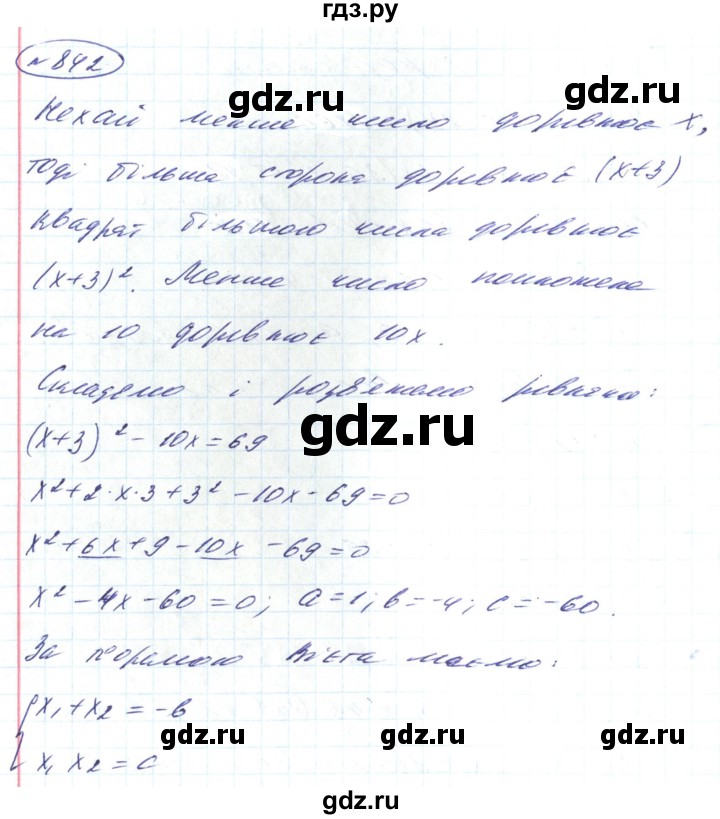 гдз.ру
№ 842
Нехай менше число дорівнює x,
тоді більша сторона дорівнює (x+3)
квадрат більшого числа дорівнює
(x+3)². Менше число помножене
на 10 дорівнює 10x.
Складемо і розв'яжемо рівняння:
(x+3)² - 10x = 69
x² + 2·x·3 + 3² - 10x - 69 = 0
x² + 6x + 9 - 10x - 69 = 0
x² - 4x - 60 = 0; a = 1; b = -4; c = -60.
За теоремою Вієта маємо:
{ x₁ + x₂ = -b
x₁ x₂ = c
gdz.ru
gdz.ru
gdz.ru
gdz.ru
gdz.ru
gdz.ru